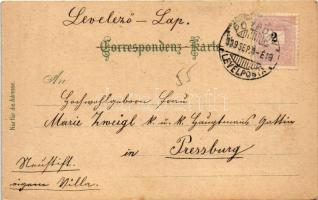 Levelező-Lap.
Correspondenz-Karte
POZSONY
899 SEP.
LEVELPOSTA
An
Hochwohlgeboren Frau
Marie Zweigl k. u. k. Hauptmanns Gattin
in
Pressburg
Neustift.
eigene Villa.
Nur für die Adresse.